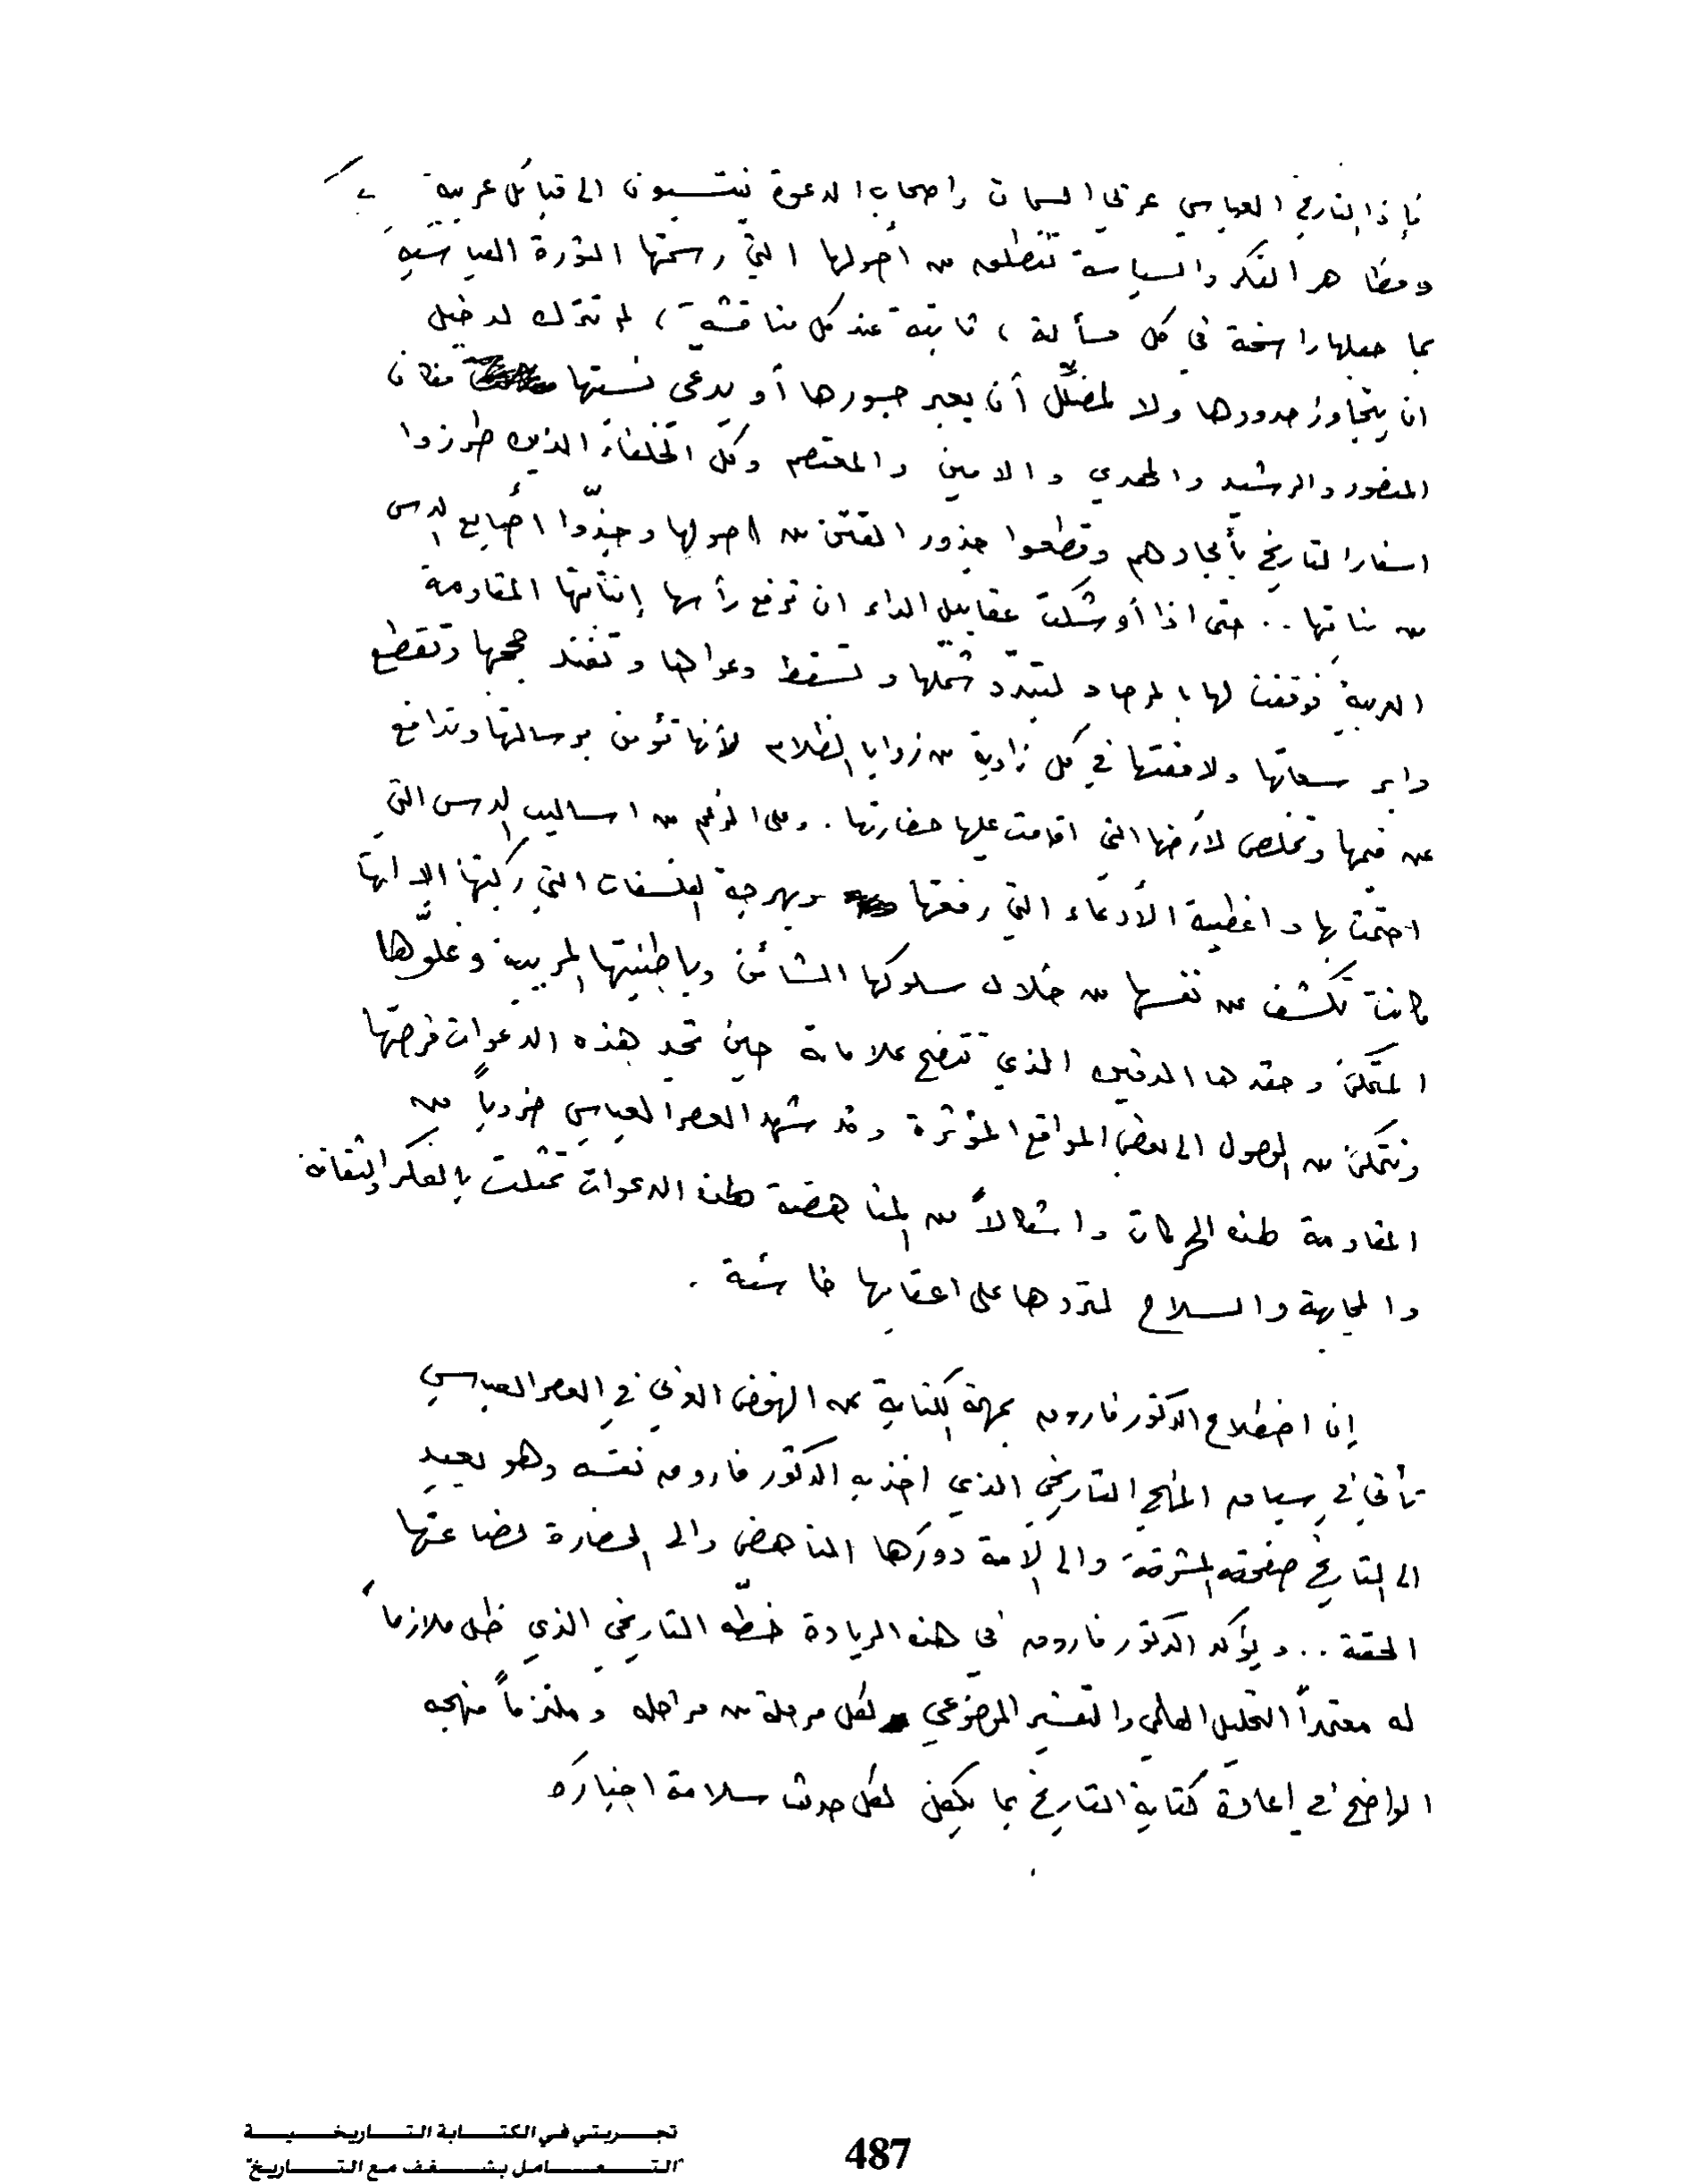 فإذا التاريخ العباسي عربي السمات واصحاب الدعوة ينتسبون الى قبائل عربية
ومظاهر الفكر والسياسة تنطلق من أصولها التي رسمتها الثورة العباسية
بما جعلها راسخة في كل مسألة ، ثابتة عند كل مناقشة ، لم تترك لدخيل
ان يتجاوز حدودها ولا لمضلّل أن يعبر جسورها أو يدعي نسبتها فكان
المنصور والرشيد والمهدي والامين والمعتصم وكل الخلفاء الذين طرزوا
اسفار التاريخ بأمجادهم وقطعوا جذور الفتن من اصولها وجذّوا أصابع الدس
من منابتها .. حتى اذا أوشكت عقابيل الداء ان ترفع رأسها إنتابتها المقاومة
العربية فوقفت لها بالمرصاد لتبدّد شملها وتسقط دعواها وتفند حججها وتقطع
دابر سعاتها ولاحقتها في كل زاوية من زوايا الظلام لأنها تؤمن برسالتها وتدافع
عن قيمها وتخلص لأرضها التي اقامت عليها حضارتها . وعلى الرغم من اساليب الدس التي
احتمت بها واغطية الأدعاء التي رفعتها وبهرجة الفلسفات التي ركبتها الا انها
كانت تكشف عن نفسها من خلال سلوكها الشائن وباطنيتها المريبة وغلوّها
المتمكن وحقدها الدفين الذي تتضح علاماته حين تجد هذه الدعوات فرصتها
وتتمكن من الوصول الى بعض المواقع المؤثرة وقد شهد العصر العباسي ضروباً من
المقاومة لهذه الحركات واشكالاً من المناهضة لهذه الدعوات تمثلت بالفكر والثقافة
والمجابهة والسلاح لتردها على اعقابها خاسئة .
إن اضطلاع الدكتور فاروق بمهمة الكتابة عن النهوض العربي في العصر العباسي
تأتي في سياق المنهج التاريخي الذي اخذ به الدكتور فاروق نفسه وهو يعيد
الى التاريخ صفحته المشرقة والى الأمة دورها الناهض والى الحضارة نصاعتها
الحقة .. ويؤكد الدكتور فاروق في هذه الريادة خطّه التاريخي الذي ظل ملازماً
له معتمداً التحليل العلمي والتفسير الموضوعي لكل مرحلة من مراحله وملتزماً منهجه
الواضح في إعادة كتابة التاريخ بما يكفل لكل حدث سلامة اختياره
تجـــربتي في الكتـــابة التـــاريخـــيـــة
487
"التـــعـــامل بشـــغف مع التـــاريخ"